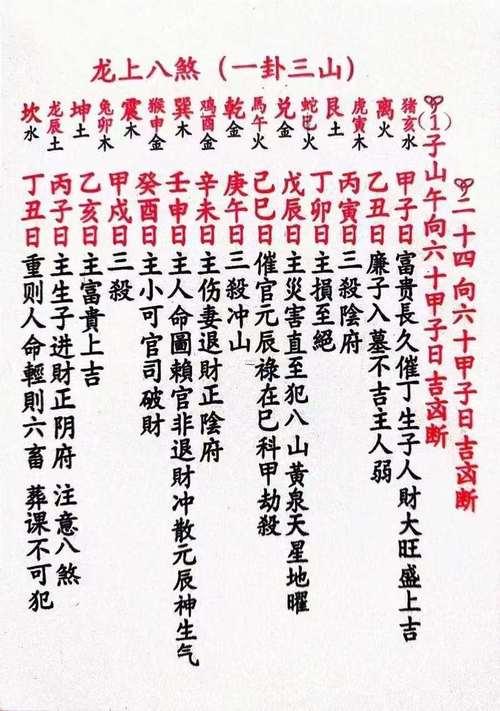 龙上八煞（一卦三山）
二十四向六十甲子日吉凶断
(1)子山午向六十甲子日吉凶断
猪亥水
离火
虎寅木
艮土
蛇巳火
兑金
馬午火
乾金
鸡酉金
巽木
猴申金
震木
兔卯木
坤土
龙辰土
坎水
甲子日富貴長久催丁生子人財大旺盛上吉
乙丑日廉子入墓不吉主人弱
丙寅日三殺陰府
丁卯日主損至絕
戊辰日主災害直至犯八山黃泉天星地曜
己巳日催官元辰祿在巳科甲劫殺
庚午日三殺冲山
辛未日主伤妻退財正陰府
壬申日主人命圖賴官非退財冲散元辰神生气
癸酉日主小可官司破財
甲戌日三殺
乙亥日主富貴上吉
丙子日主生子进財正阴府 注意八煞
丁丑日重则人命輕则六畜 葬课不可犯